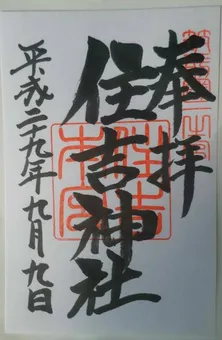 奉拝
住吉神社
平成二十九年九月九日